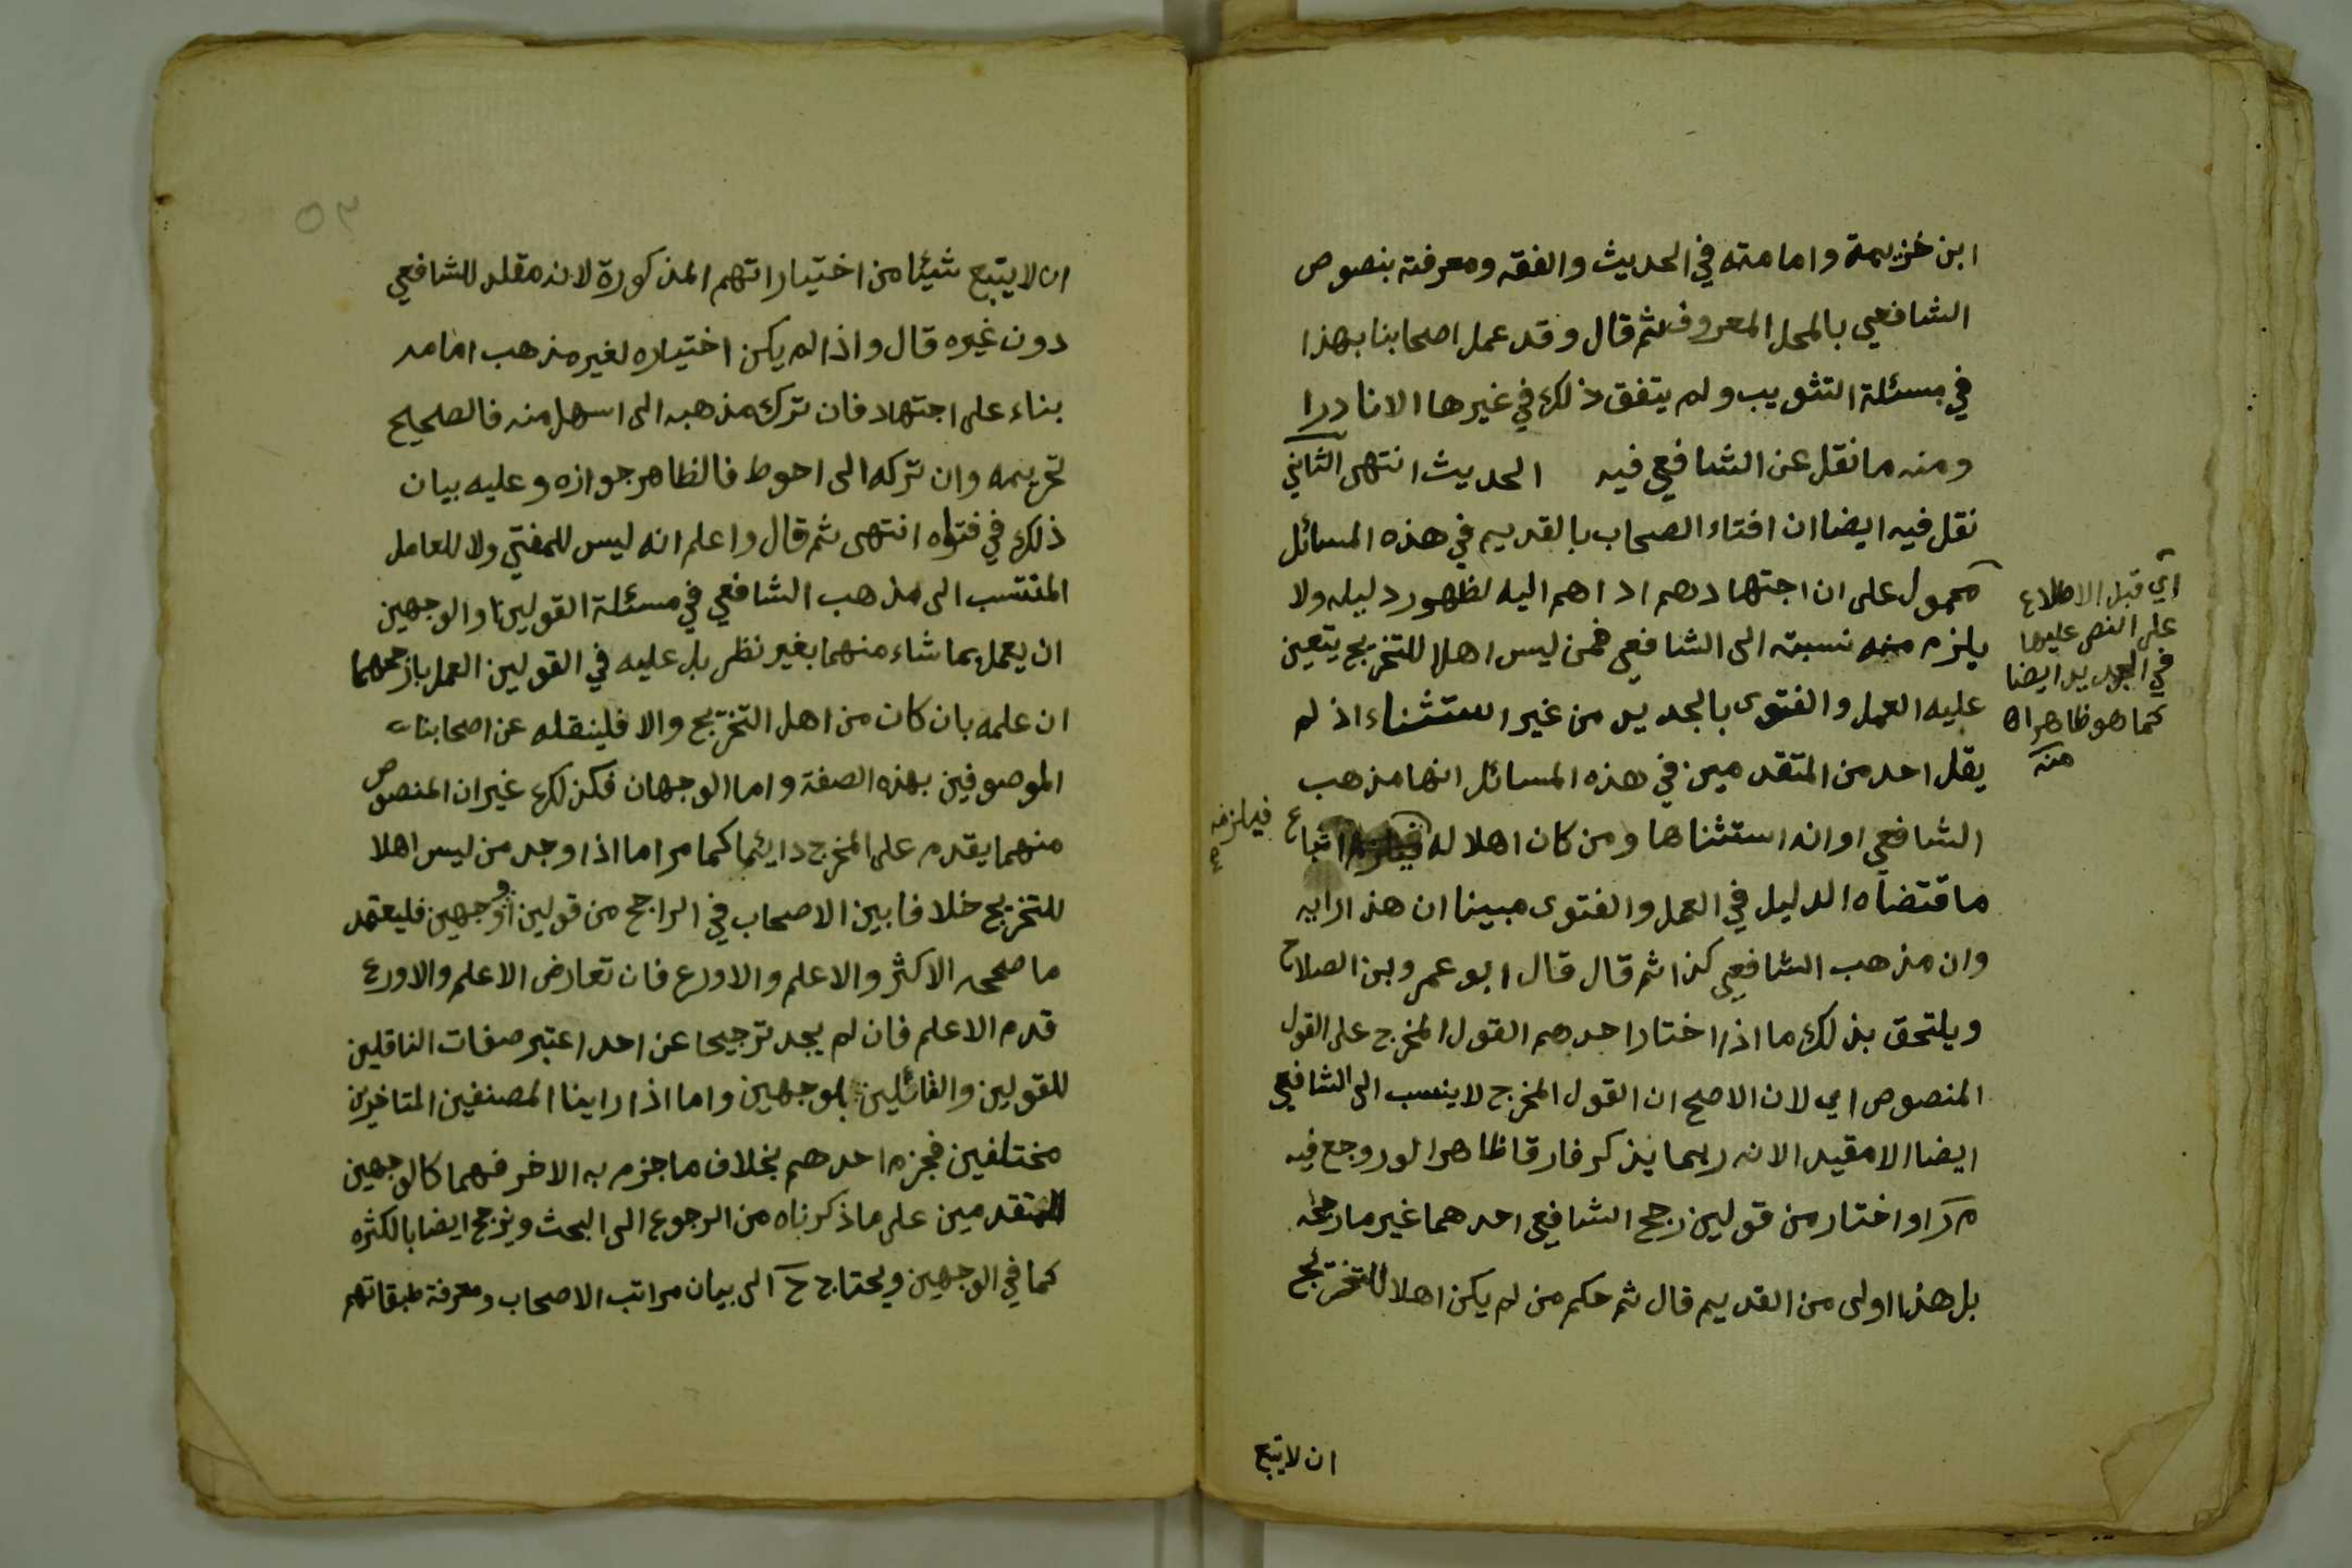 ابن خزيمة وامامته في الحديث والفقه ومعرفته بنصوص
الشافعي بالمحل المعروف ثم قال وقد عمل اصحابنا بهذا
في مسئلة التثويب ولم يتفق ذلك في غيرها الا نادرا
ومنه ما نقل عن الشافعي فيه الحديث انتهى الثاني
نقل فيه ايضا ان افتاء الصحاب بالقديم في هذه المسائل
محمول على ان اجتهادهم اداهم اليه لظهور دليله ولا
يلزم منه نسبته الى الشافعي فمن ليس اهلا للتخريج يتعين
عليه العمل والفتوى بالجديد من غير استثناء اذ لم
يقل احد من المتقدمين في هذه المسائل انها مذهب
الشافعي او انه استثناها ومن كان اهلا له اتباع
فيلزمه
ما قتضاه الدليل في العمل والفتوى مبينا ان هذا رايه
وان مذهب الشافعي كذا ثم قال قال ابو عمرو بن الصلاح
ويلتحق بذلك ما اذا اختار احدهم القول المخرج على القول
المنصوص اي لان الاصح ان القول المخرج لا ينسب الى الشافعي
ايضا الا مقيد الانه ربما يذكر فارقا ظاهرا لو روجع فيه
م ر او اختار من قولين رجح الشافعي احدهما غير ما رجحه
بل هذا اولى من القديم قال ثم حكم من لم يكن اهلا للتخريج
اي قبل الاطلاع
على النص عليها
في الجديد ايضا
كما هو ظاهر اه
منه
ان لا يتبع
٥٣
ان لا يتبع شيئا من اختياراتهم المذكورة لانه مقلد للشافعي
دون غيره قال واذا لم يكن اختياره لغير مذهب امامه
بناء على اجتهاد فان ترك مذهبه الى اسهل منه فالصحيح
تحريمه وان تركه الى احوط فالظاهر جوازه وعليه بيان
ذلك في فتواه انتهى ثم قال واعلم انه ليس للمفتي ولا للعامل
المنتسب الى مذهب الشافعي في مسئلة القولين او الوجهين
ان يعمل بما شاء منهما بغير نظر بل عليه في القولين العمل بارجحهما
ان علمه بان كان من اهل التخريج والا فلينقله عن اصحابنا
الموصوفين بهذه الصفة واما الوجهان فكذلك غير ان المنصوص
منهما يقدم على المخرج دايئما كما مر اما اذا وجد من ليس اهلا
للتخريج خلافا بين الاصحاب في الراجح من قولين او وجهين فليعتمد
ما صححه الاكثر والاعلم والاورع فان تعارض الاعلم والاورع
قدم الاعلم فان لم يجد ترجيحا عن احد اعتبر صفات الناقلين
للقولين والقائلين بلوجهين واما اذا راينا المصنفين المتاخرين
مختلفين فجزم احدهم بخلاف ما جزم به الاخر فهما كالوجهين
للمتقدمين على ما ذكرناه من الرجوع الى البحث ويرجح ايضا بالكثره
كما في الوجهين ويحتاج ح الى بيان مراتب الاصحاب ومعرفة طبقاتهم